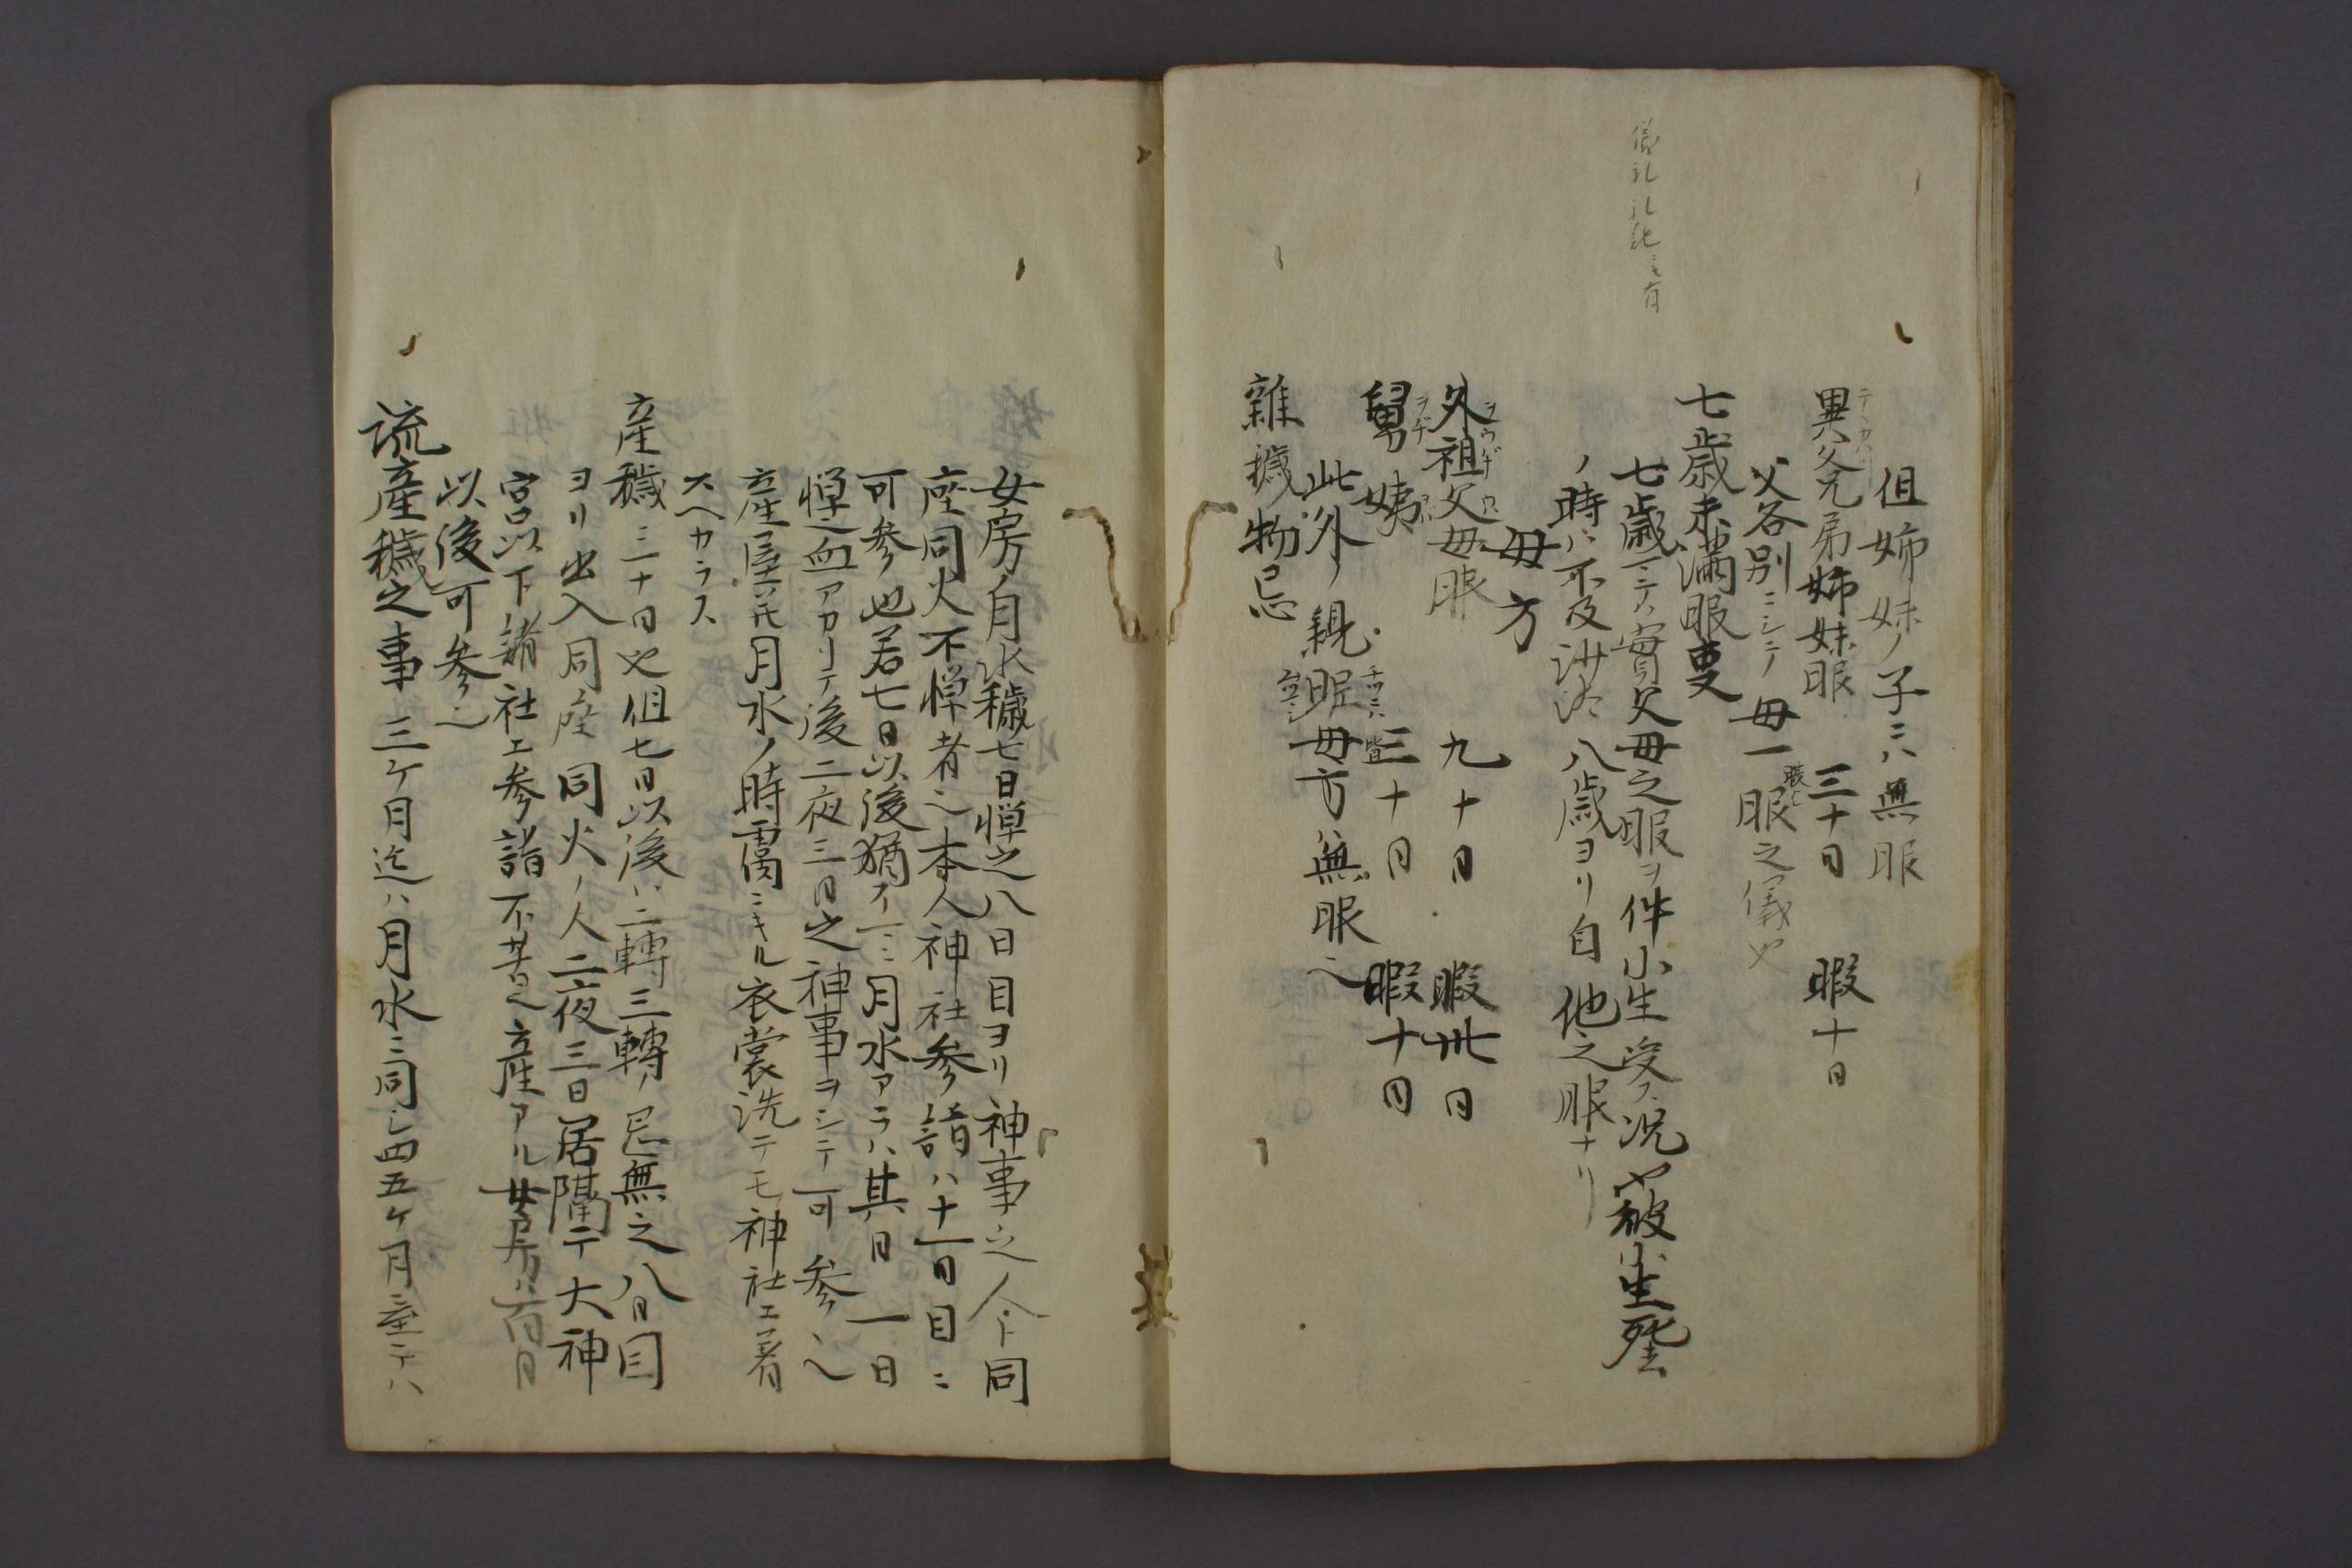 儀礼礼記ニモ有
但姉妹ノ子ニハ無服
異父兄弟姉妹服 三十日 暇十日
父各別ニシテ母一服之儀也
七歳未満服事
七歳ニテハ實父母之服ヲ件小生受ス況也被小生死去
ノ時ハ不及沙汰八歳ヨリ自他之服ナリ
母方
外祖父母服 九十日 暇卅日
舅 姨 三十日 暇十日
此外ノ親昵母方無服也
雑穢物忌
女房ノ月水穢七日憚之八日目ヨリ神事之人ト同
座同火不憚者也本人神社参詣ハ十一日目ニ
可参也若七日以後猶モ月水アラハ其日一日
憚之血アカリテ後二夜三日之神事ヲシテ可参也
産屋并月水ノ時膚ニキル衣裳洗テモ神社エ着
スヘカラス
産穢三十日也但七日以後ハ二轉三轉ノ忌無之八日目
ヨリ出入同座同火ノ人二夜三日居隔テ大神
宮以下諸社エ参詣不苦也産アル女房ハ百日
以後可参也
流産穢之事 三ケ月迄ハ月水ニ同シ四五ケ月産ニテハ